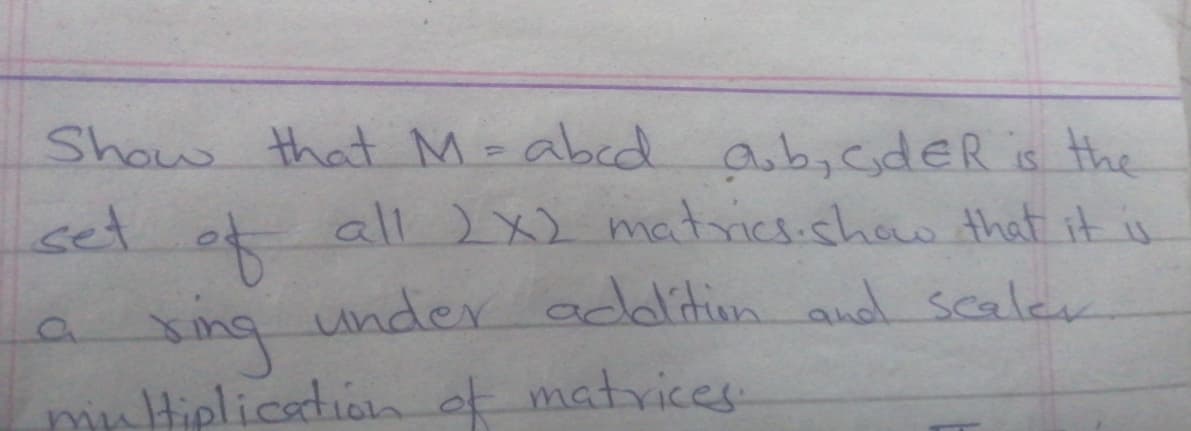 Show that M = abcd a,b,c,d∈R is the
set of all 2×2 matrics. show that it is
a ring under addition and scaler
multiplication of matrices.